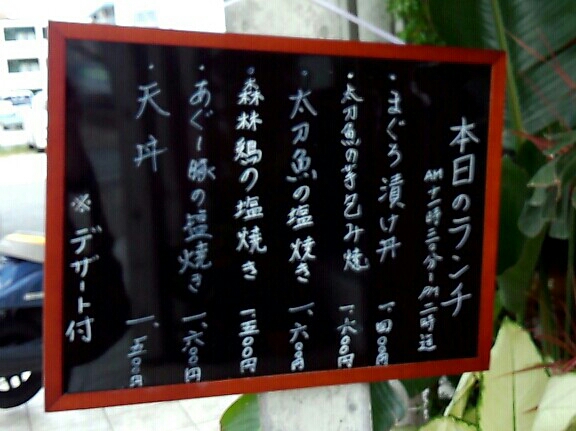 本日のランチ
AM十一時三十分〜PM二時迄
・まぐろ漬け丼 一、四〇〇円
・太刀魚の芋包み焼 一、六〇〇円
・太刀魚の塩焼き 一、六〇〇円
・森林鶏の塩焼き 一、五〇〇円
・あぐー豚の塩焼き 一、六〇〇円
・天丼 一、五〇〇円
※デザート付